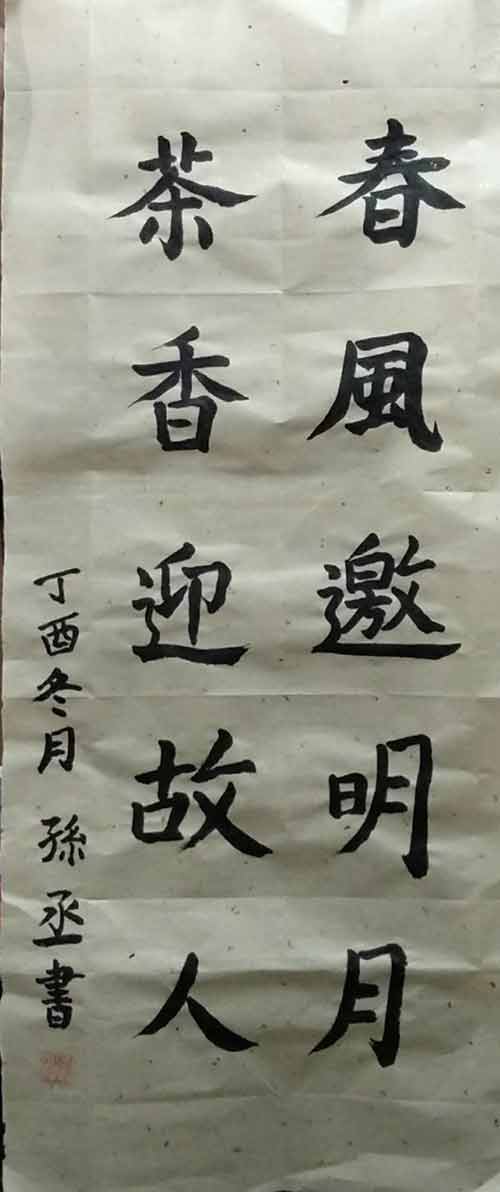 春風邀明月
茶香迎故人
丁酉冬月 孫丞書